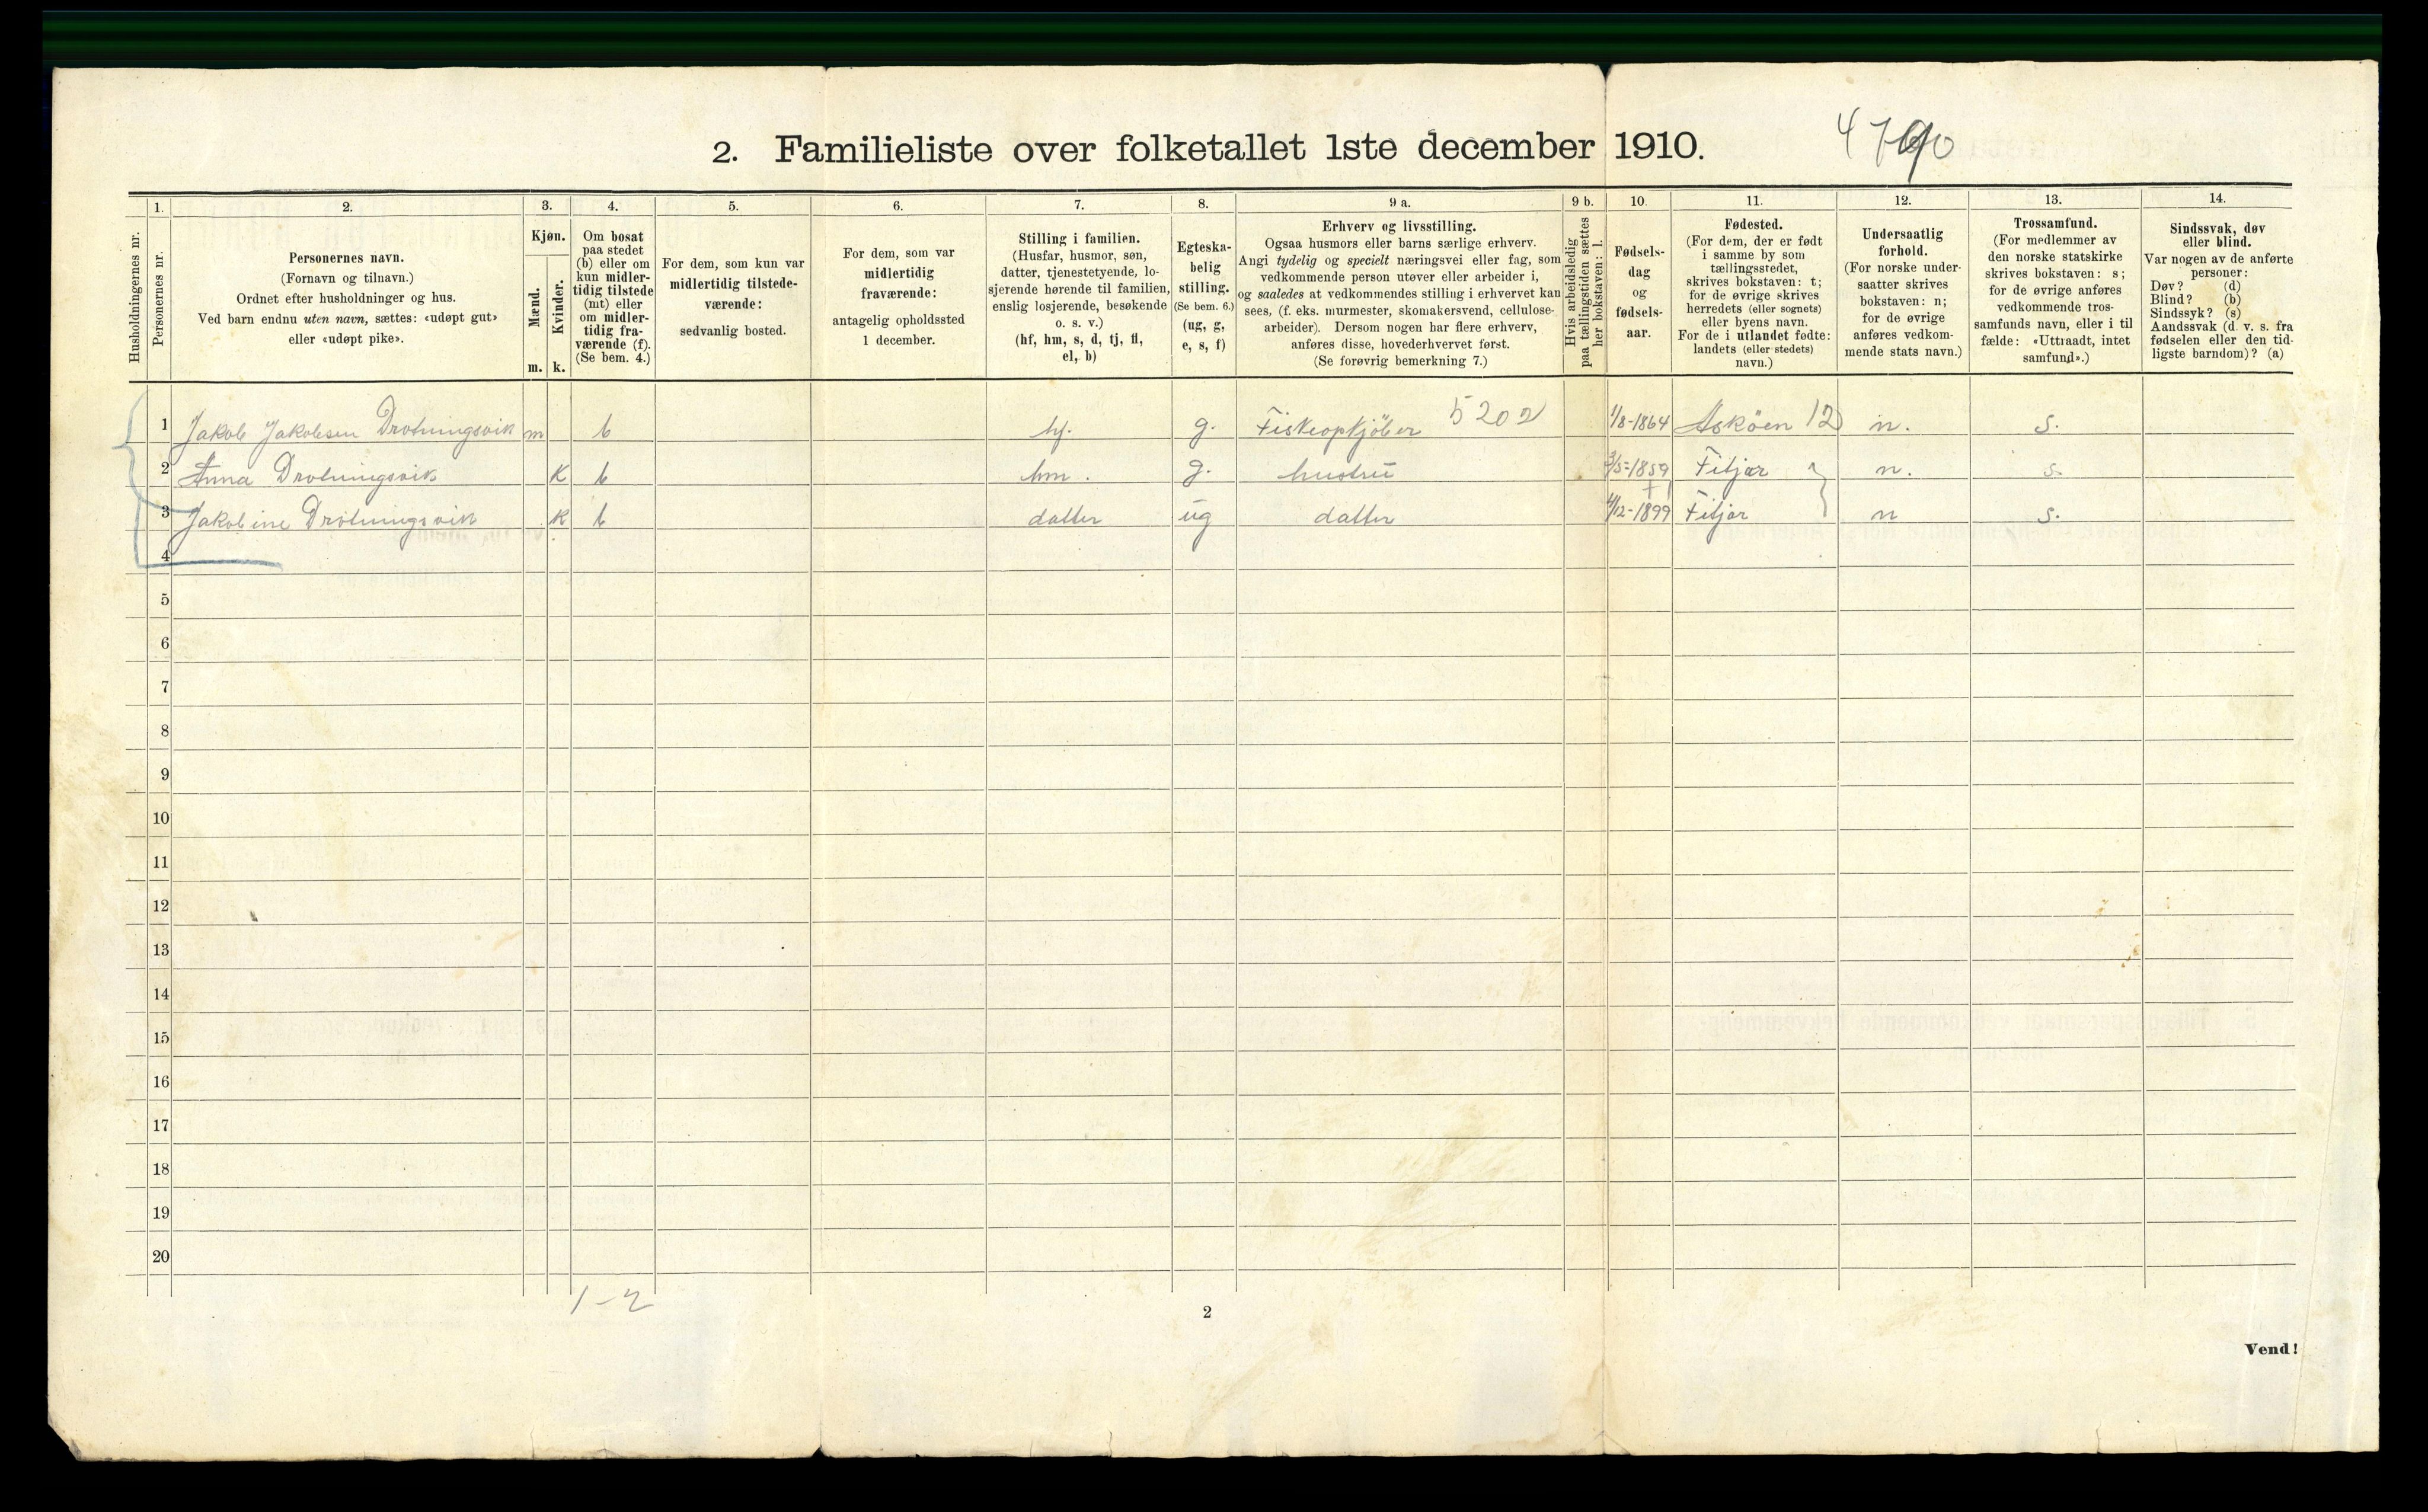 2. Familieliste over folketallet 1ste december 1910.
Husholdningernes nr.
1.
Personernes nr.
2.
Personernes navn.
(Fornavn og tilnavn.)
Ordnet efter husholdninger og hus.
Ved barn endnu uten navn, sættes: «udøpt gut»
eller «udøpt pike».
3.
Kjøn.
Mænd.
Kvinder.
m. k.
4.
Om bosat
paa stedet
(b) eller om
kun midler-
tidig tilstede
(mt) eller
om midler-
tidig fra-
værende (f).
(Se bem. 4.)
5.
For dem, som kun var
midlertidig tilstede-
værende:
sedvanlig bosted.
6.
For dem, som var
midlertidig
fraværende:
antagelig opholdssted
1 december.
7.
Stilling i familien.
(Husfar, husmor, søn,
datter, tjenestetyende, lo-
sjerende hørende til familien,
enslig losjerende, besøkende
o. s. v.)
(hf, hm, s, d, tj, fl,
el, b)
8.
Egteska-
belig
stilling.
(Se bem. 6.)
(ug, g,
e, s, f)
9 a.
Erhverv og livsstilling.
Ogsaa husmors eller barns særlige erhverv.
Angi tydelig og specielt næringsvei eller fag, som
vedkommende person utøver eller arbeider i,
og saaledes at vedkommendes stilling i erhvervet kan
sees, (f. eks. murmester, skomakersvend, cellulose-
arbeider). Dersom nogen har flere erhverv,
anføres disse, hovederhvervet først.
(Se forøvrig bemerkning 7.)
9 b.
Hvis arbeidsledig
paa tællingstiden sættes
her bokstaven: l.
10.
Fødsels-
dag
og
fødsels-
aar.
11.
Fødested.
(For dem, der er født
i samme by som
tællingsstedet,
skrives bokstaven: t;
for de øvrige skrives
herredets (eller sognets)
eller byens navn.
For de i utlandet fødte:
landets (eller stedets)
navn.)
12.
Undersaatlig
forhold.
(For norske under-
saatter skrives
bokstaven: n;
for de øvrige
anføres vedkom-
mende stats navn.)
13.
Trossamfund.
(For medlemmer av
den norske statskirke
skrives bokstaven: s;
for de øvrige anføres
vedkommende tros-
samfunds navn, eller i til
fælde: «Uttraadt, intet
samfund».)
14.
Sindssvak, døv
eller blind.
Var nogen av de anførte
personer:
Døv? (d)
Blind? (b)
Sindssyk? (s)
Aandssvak (d. v. s. fra
fødselen eller den tid-
ligste barndom)? (a)
1 Jakob Jakobsen Drotningsvik m b hf. g. Fiskeopkjöber 5202 1/8-1864 Asköen 12 n. s.
2 Anna Drotningsvik K b hm. g. hustrü 3/5-1859 Fitjar n. s.
3 Jakobine Drotningsvik K b datter üg datter 4/12-1899 Fitjar n s.
4
5
6
7
8
9
10
11
12
13
14
15
16
17
18
19
20
1-2
2
Vend!